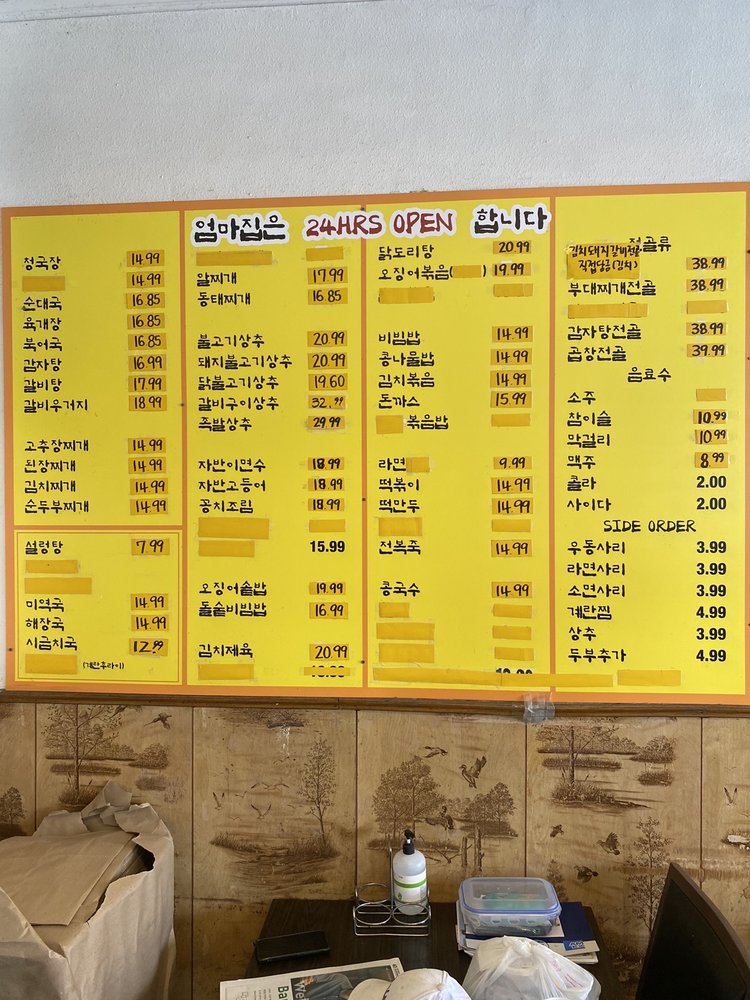 엄마집은 24HRS OPEN 합니다
청국장 14.99
14.99
순대국 16.85
육개장 16.85
북어국 16.85
감자탕 16.99
갈비탕 17.99
갈비우거지 18.99
고추장찌개 14.99
된장찌개 14.99
김치찌개 14.99
순두부찌개 14.99
설렁탕 7.99
미역국 14.99
해장국 14.99
시금치국 12.99
(계란후라이)
알찌개 17.99
동태찌개 16.85
불고기상추 20.99
돼지불고기상추 20.99
닭불고기상추 19.60
갈비구이상추 32.99
족발상추 29.99
자반이면수 18.99
자반고등어 18.99
꽁치조림 18.99
15.99
오징어솥밥 19.99
돌솥비빔밥 16.99
김치제육 20.99
닭도리탕 20.99
오징어볶음( ) 19.99
비빔밥 14.99
콩나물밥 14.99
김치볶음 14.99
돈까스 15.99
볶음밥
라면 9.99
떡볶이 14.99
떡만두 14.99
전복죽 14.99
콩국수 14.99
전골류
김치돼지갈비전골
직접담금(김치) 38.99
부대찌개전골 38.99
감자탕전골 38.99
곱창전골 39.99
음료수
소주
참이슬 10.99
막걸리 10.99
맥주 8.99
콜라 2.00
사이다 2.00
SIDE ORDER
우동사리 3.99
라면사리 3.99
소면사리 3.99
계란찜 4.99
상추 3.99
두부추가 4.99